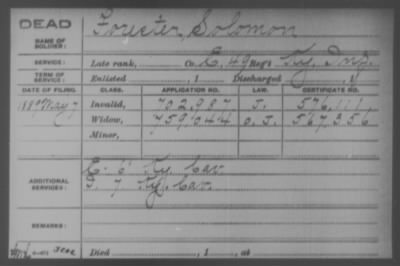 DEAD
NAME OF SOLDIER: Forester, Solomon
SERVICE: Late rank, Co. E, 49 Reg't Ky. Inf.
TERM OF SERVICE: Enlisted , 1 Discharged , 1
DATE OF FILING. CLASS. APPLICATION NO. LAW. CERTIFICATE NO.
1889 May 7 Invalid, 702,987 J. 576,111
Widow, 759,044 O.J. 567,356
Minor,
ADDITIONAL SERVICES: E. 6 Ky. Cav.
I. 7 Ky. Cav.
REMARKS:
Died , 1 , at